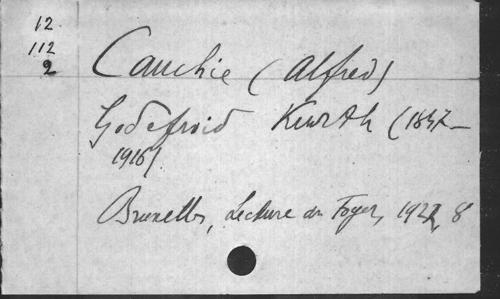 12.
112
2
Cauchie (Alfred)
Godefroid Kurth (1847-
1916)
Bruxelles, Lecture du Foyer, 1922, 8